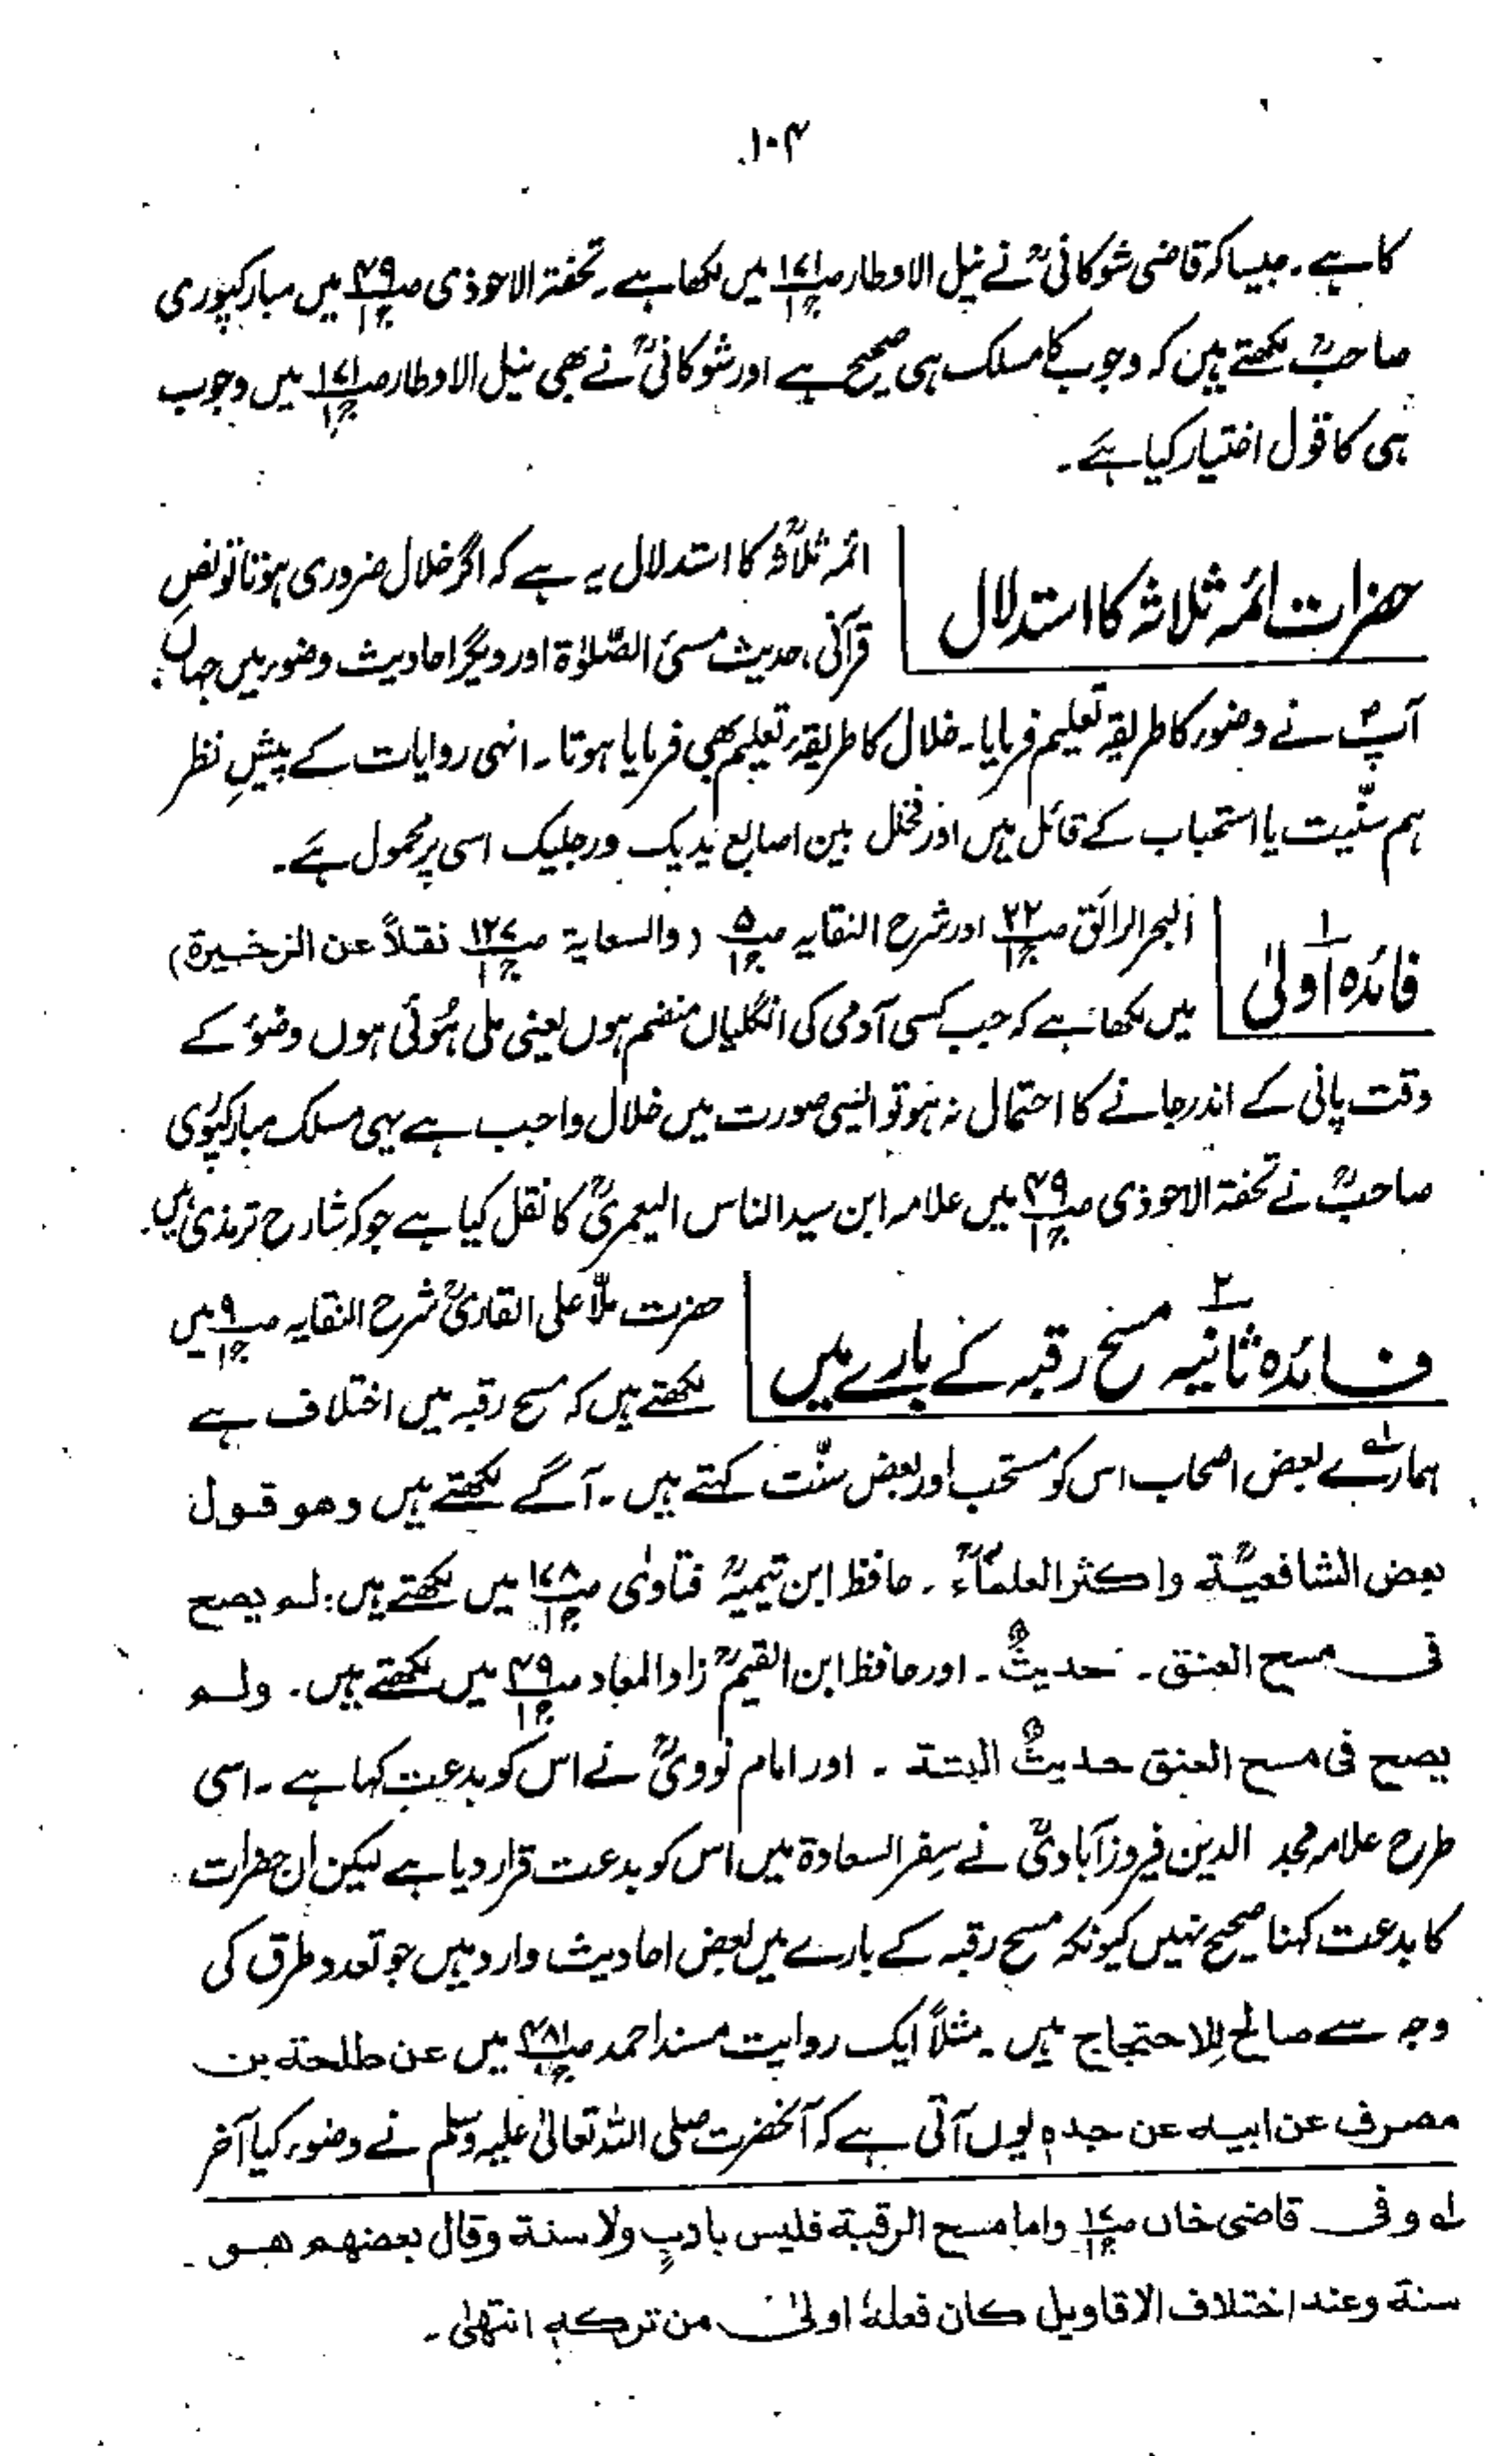 ۱۰۴
کا ہے۔ جیسا کہ قاضی شوکانیؒ نے نیل الاوطار ص۱۷۱ ج۱ میں لکھا ہے۔ تحفۃ الاحوذی ص۴۹ ج۱ میں مبارکپوری
صاحبؒ لکھتے ہیں کہ وجوب کا مسلک ہی صحیح ہے اور شوکانیؒ نے بھی نیل الاوطار ص۱۷۱ ج۱ میں وجوب
ہی کا قول اختیار کیا ہے۔
حضرات ائمہ ثلاثہ کا استدلال
ائمہ ثلاثہؒ کا استدلال یہ ہے کہ اگر خلال ضروری ہوتا تو نصِ
قرآنی، حدیث مسیٔ الصّلوٰۃ اور دیگر احادیث وضور میں جہاں
آپؐ نے وضور کا طریقہ تعلیم فرمایا۔ خلال کا طریقہ تعلیم بھی فرمایا ہوتا۔ انہی روایات کے پیشِ نظر
ہم سنّیت یا استحباب کے قائل ہیں اور فخلل بین اصابع یدیک ورجلیک اسی پر محمول ہے۔
فائدہ اُولیٰ ۱
البحر الرائق ص۲۲ ج۱ اور شرح النقایہ ص۵ ج۱ (والسعایة ص۱۲۷ ج۱ نقلاً عن الزخیرة)
میں لکھا ہے کہ جب کسی آدمی کی انگلیاں منضم ہوں یعنی ملی ہوئی ہوں وضوٴ کے
وقت پانی کے اندر جانے کا احتمال نہ ہو تو ایسی صورت میں خلال واجب ہے یہی مسلک مبارکپوری
صاحبؒ نے تحفۃ الاحوذی ص۴۹ ج۱ میں علامہ ابن سید الناس الیعمریؒ کا نقل کیا ہے جو کہ شارح ترمذی ہیں۔
فائدہ ثانیہ ۲ مسح رقبہ کے بارے میں
حضرت ملّا علی القاریؒ شرح النقایہ ص۹ ج۱ میں
لکھتے ہیں کہ مسح رقبہ میں اختلاف ہے
ہمارےلہ بعض اصحاب اس کو مستحب اور بعض سنّت کہتے ہیں۔ آگے لکھتے ہیں وھو قول
بعض الشافعیّة واکثر العلماءؒ۔ حافظ ابن تیمیہؒ فتاوٰی ص۱۷۸ ج۱ میں لکھتے ہیں: لم یصح
فی مسح العنق۔ حدیثٌ۔ اور حافظ ابن القیمؒ زاد المعاد ص۴۹ ج۱ میں لکھتے ہیں۔ ولم
یصح فی مسح العنق حدیثٌ البتة۔ اور امام نوویؒ نے اس کو بدعت کہا ہے۔ اسی
طرح علامہ مجد الدین فیروزآبادیؒ نے سِفر السعادۃ میں اس کو بدعت قرار دیا ہے لیکن ان حضرات
کا بدعت کہنا صحیح نہیں کیونکہ مسح رقبہ کے بارے میں بعض احادیث وارد ہیں جو تعدد طرق کی
وجہ سے صالح للاحتجاج ہیں۔ مثلاً ایک روایت مسند احمد ص۴۸۱ میں عن طلحة بن
مصرف عن ابیہ عن جدہ یوں آتی ہے کہ آنحضرت صلی اللہ تعالیٰ علیہ وسلم نے وضور کیا آخر
لہ وفی قاضی خان ص۱۷ ج۱ واما مسح الرقبة فلیس بادبٍ ولا سنة وقال بعضھم ھو
سنة وعند اختلاف الاقاویل کان فعلہٗ اولیٰ من ترکہٖ انتہیٰ۔